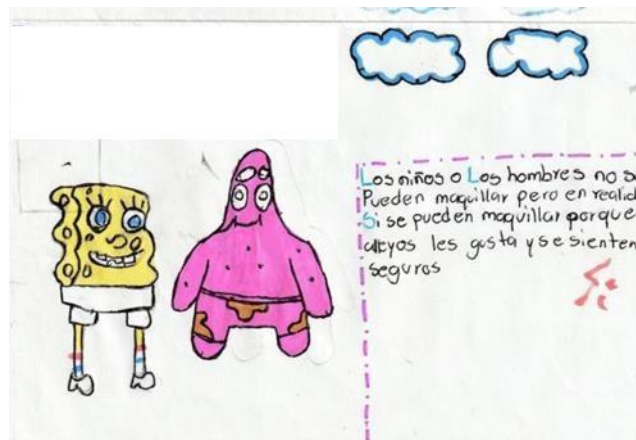 Los niños o Los hombres no se
Pueden maquillar pero en realid
Si se pueden maquillar porque
alleyos les gusta y se sienten
seguros